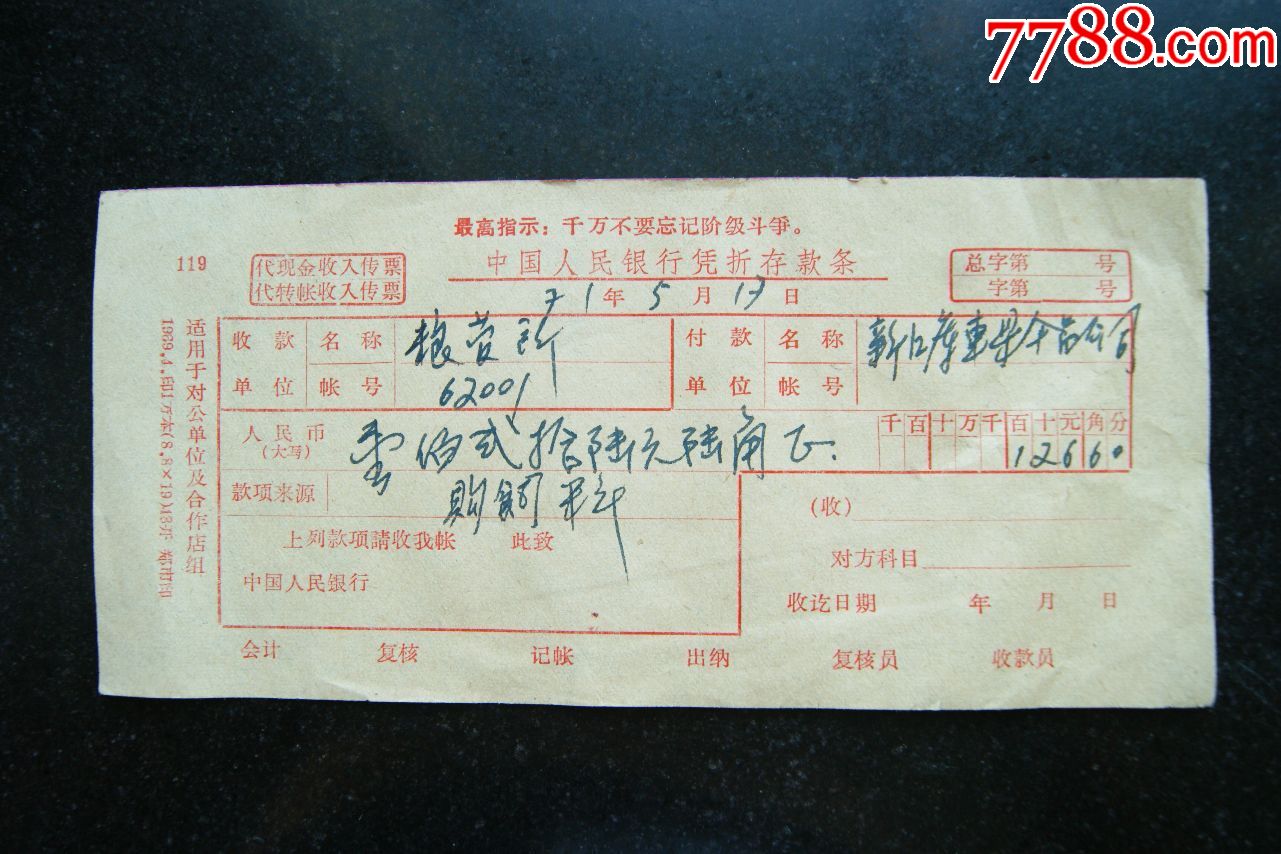 7788.com
最高指示：千万不要忘记阶级斗争。
119
代现金收入传票
代转帐收入传票
中国人民银行凭折存款条
总字第 号
字第 号
71年5月17日
收款 名称 粮营所
单位 帐号 62001
付款 名称 食品公司
单位 帐号
人民币
(大写)
壹佰贰拾陆元陆角正
千百十万千百十元角分
12660
款项来源 购饲料
上列款项請收我帐 此致
中国人民银行
(收)
对方科目
收讫日期 年 月 日
会计 复核 记帐 出纳 复核员 收款员
适用于对公单位及合作店组
1969.4.印1万本(8.8×19)18开